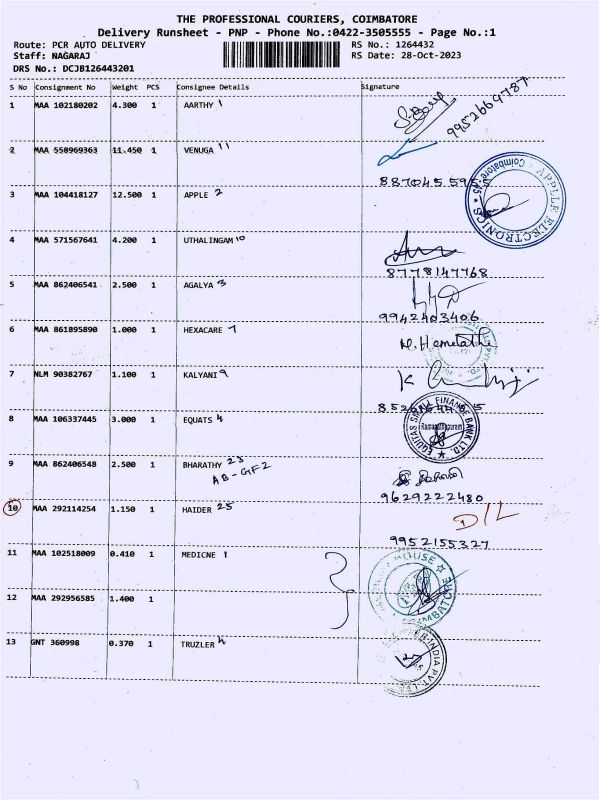 THE PROFESSIONAL COURIERS, COIMBATORE
Delivery Runsheet - PNP - Phone No.:0422-3505555 - Page No.:1
Route: PCR AUTO DELIVERY RS No.: 1264432
Staff: NAGARAJ RS Date: 28-Oct-2023
DRS No.: DCJB126443201
S No Consignment No Weight PCS Consignee Details Signature
1 MAA 102180202 4.300 1 AARTHY 1
9952669787
2 MAA 558969363 11.450 1 VENUGA 11
887045595
3 MAA 104418127 12.500 1 APPLE 2
APPLE ELECTRONICS Coimbatore
4 MAA 571567641 4.200 1 UTHALINGAM 10
8778147768
5 MAA 862406541 2.500 1 AGALYA 3
9942403406
6 MAA 861895890 1.000 1 HEXACARE 7
7 NLM 90382767 1.100 1 KALYANI 9
K
8 MAA 106337445 3.000 1 EQUATS 4
EQUITAS SMALL FINANCE BANK LTD.
Ramanathapuram
9 MAA 862406548 2.500 1 BHARATHY 23
AB-GF2
9629222480
10 MAA 292114254 1.150 1 HAIDER 25
D/L
9952155327
11 MAA 102518009 0.410 1 MEDICNE 1
HOUSE
12 MAA 292956585 1.400 1
13 GNT 360998 0.370 1 TRUZLER 4
INDIA PVT. LTD.